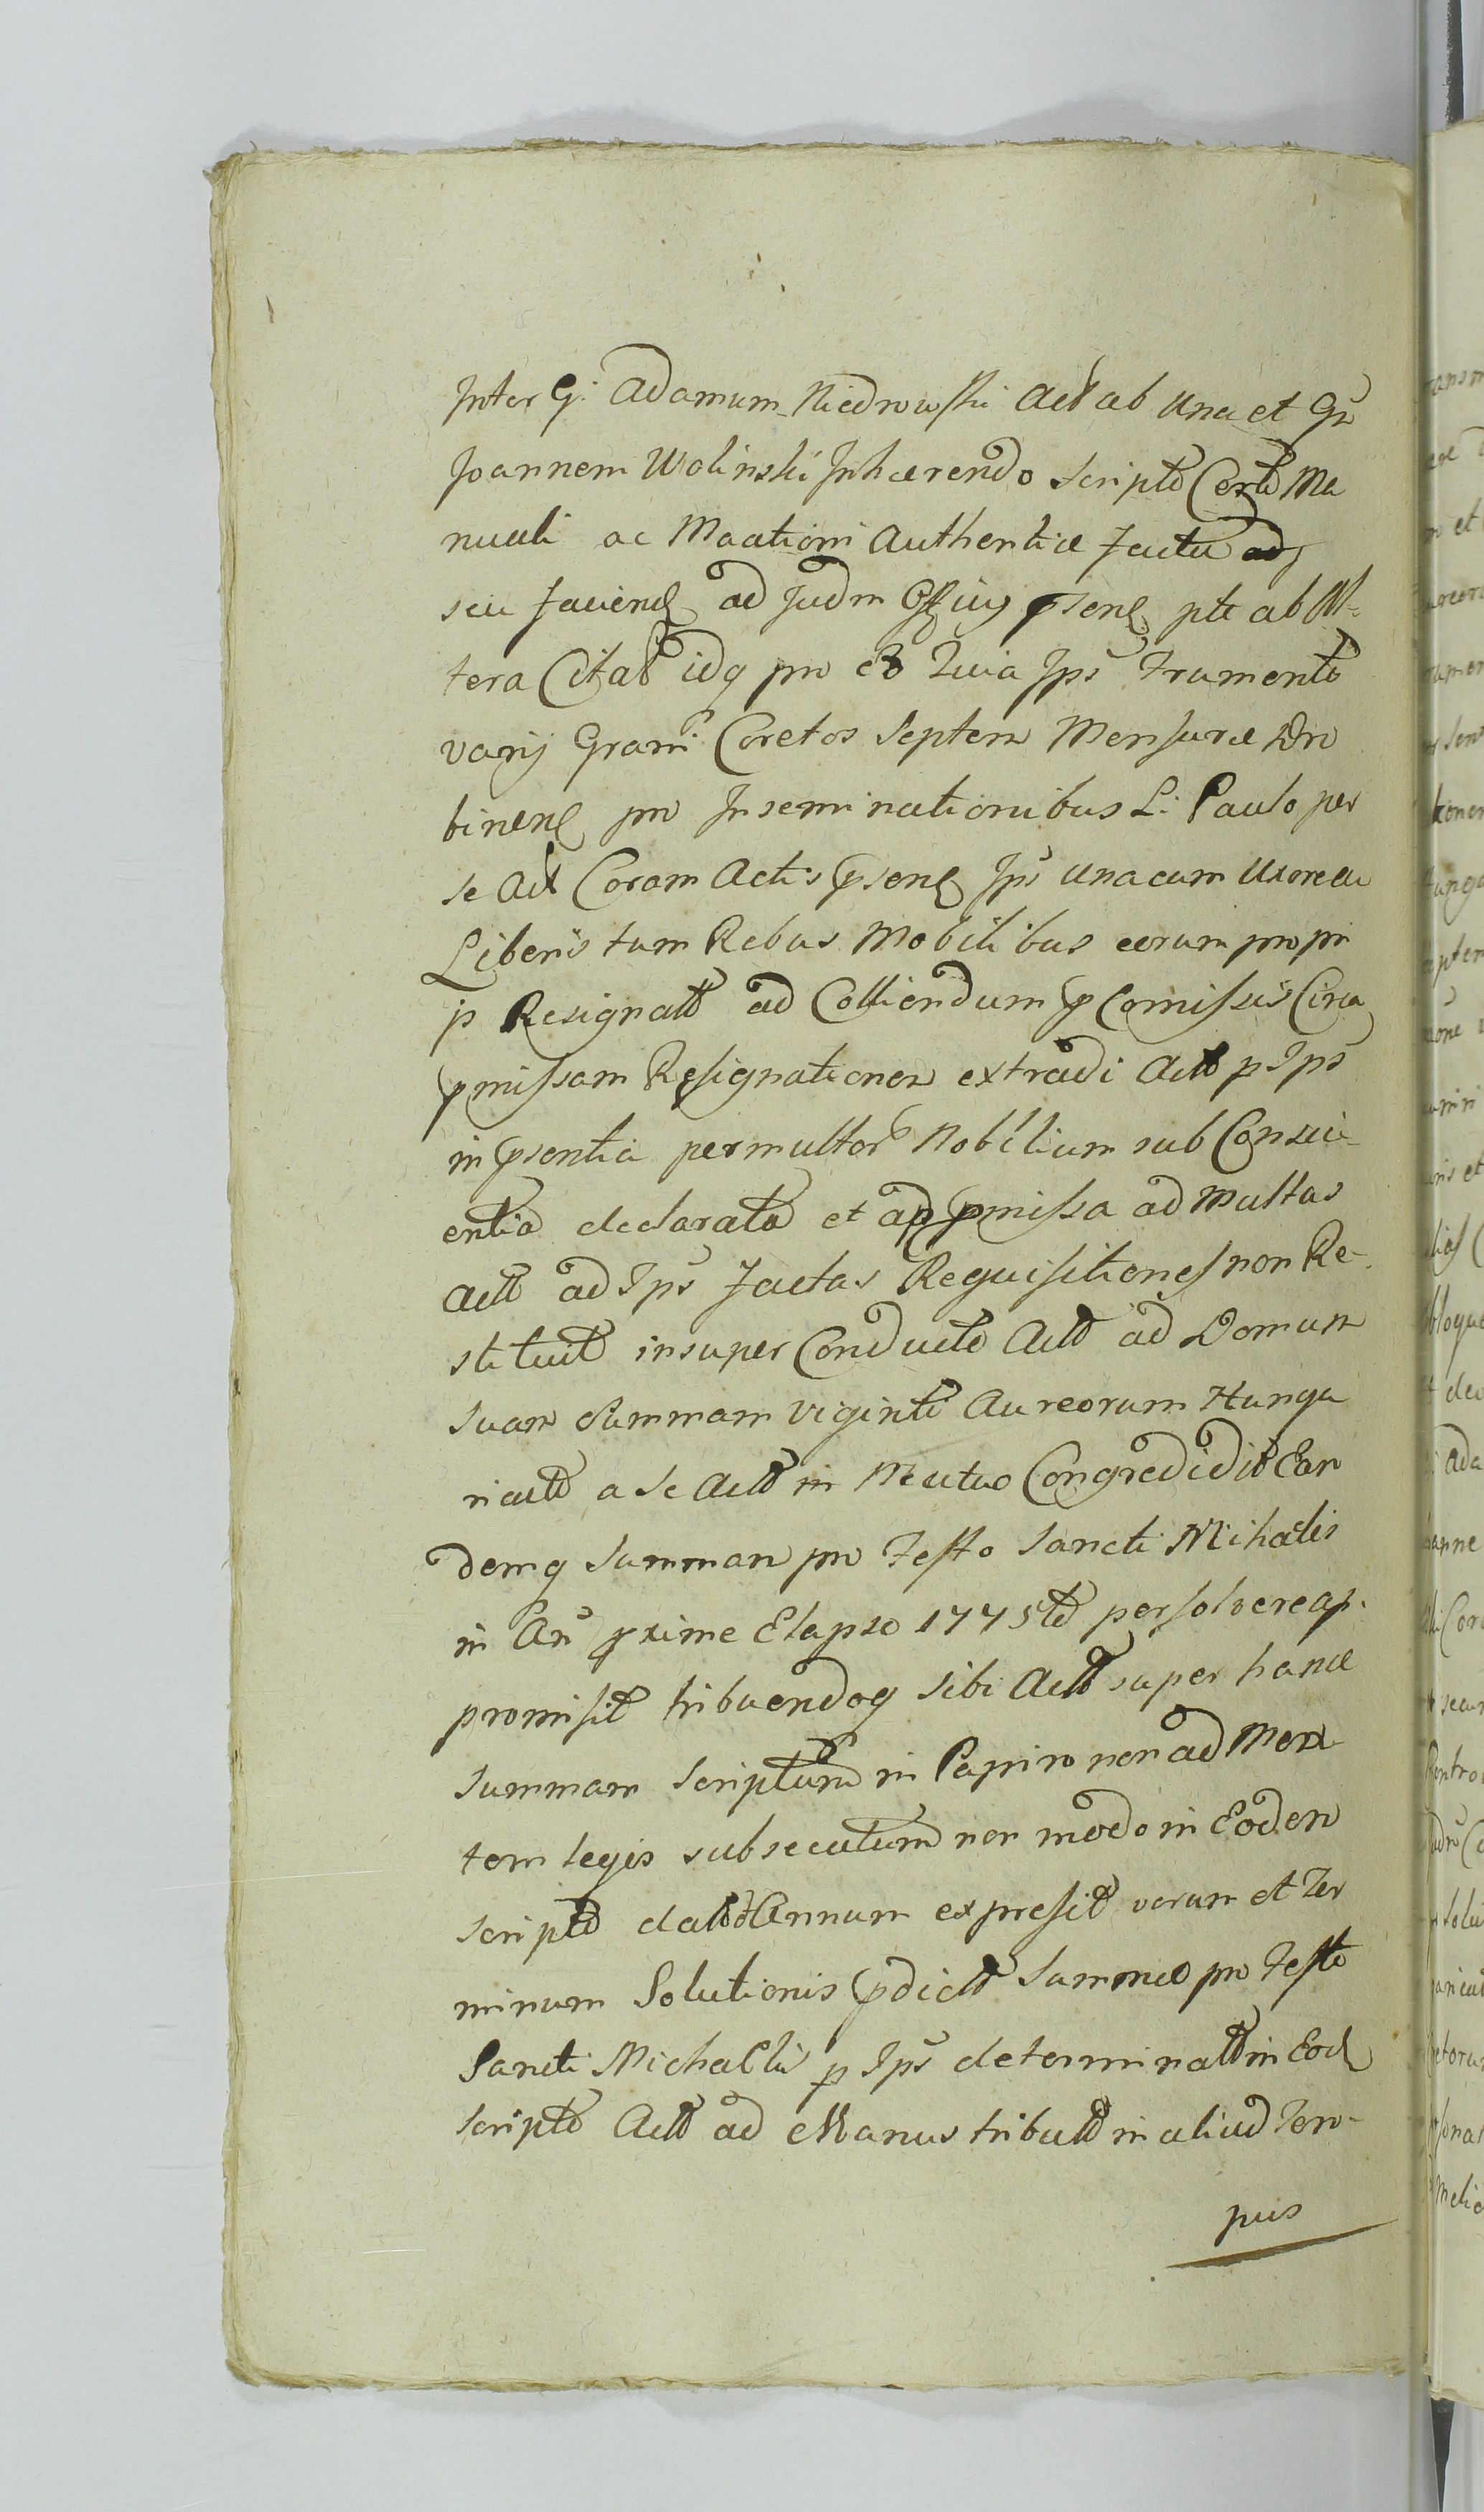 Inter G: Adamum Niedrowski Act ab una et Gn
Joannem Wolinski Inhærendo Scripto Certo Ma
nuali ac Maationi Authenticæ factæ
seu faciend ad Judm psens pte ab Al-
tera Citat idq pro eo Quia Ips frumento
varij Grani Coretos Septem Mensuræ Dro
binens pro Inseminationibus L: Paulo per
se Act Coram Actis psens Ips una cum Uxore eu
Liberis tum Rebus Mobilibus eorum propri
p Resignatt ad Colliendum p Comissis Circa
pmissam Resignationem extradi Actt p Ips
in psentia permultor Nobilium sub Consci-
entia declarata et ap pmissa ad multas
Actt ad Ips factas Requisitiones non Re-
stituit insuper Conducto Actt ad Domum
Suam Summam viginti Aureorum Hunga
ricatt a se Actt in Mutuo Congredidit Ean
demq Summam pro festo Sancti Mihaelis
in An pxime Elapso 1775to persolvere ap.
promisit tribuendoq sibi Actt super hanc
summam Scriptum in Papiro non ad Men
tem legis subsecutum non modo in Eodem
scripto datt Annum expresit verum et Ter
minum Solutionis pdictt Summæ pro festo
Sancti Michaelis p Ips determinatt in Eod
scripto Actt ad Manus tributt in aliud Tem-
pus